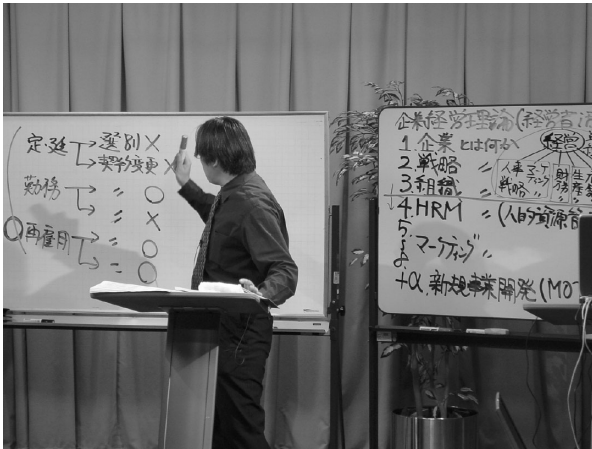 定延 → 選別 ×
→ 契約変更 ×
勤務 → 〃 ○
→ 〃 ×
再雇用 → 〃 ○
→ 〃 ○
企業経営理論(経営
1. 企業とは何か
2. 戦略 〃
3. 組織 〃
4. HRM 〃 (人的資源管
5
マーケティング 〃
8
+α. 新規事業開発 (MO
経営
人事戦略
マーケティング
財務
生産